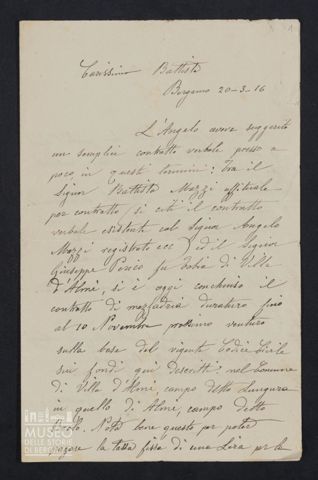 Carissimo Battista
Bergamo 20-3-16
L'Angelo aveva suggerito
un semplice contratto verbale presso a
poco in questi termini: tra il
Signor Battista Mazzi affittuale
per contratto (si citi il contratto
verbale esistente col Signor Angelo
Mazzi registrato ecc) ed il Signor
Giuseppe Perico fu Tobia di Villa
d'Almè, si è oggi conchiuso il
contratto di mezzadria duraturo fino
al 10 Novembre prossimo venturo
sulla base del vigente Codice Civile
sui fondi qui descritti: nel Comune
di Villa d'Almè campo detto Lungura
in quello di Almè, campo detto
Nota bene questo per poter
pagare la tassa fissa di una Lira per le
MUSEO
DELLE STORIE
DI BERGAMO